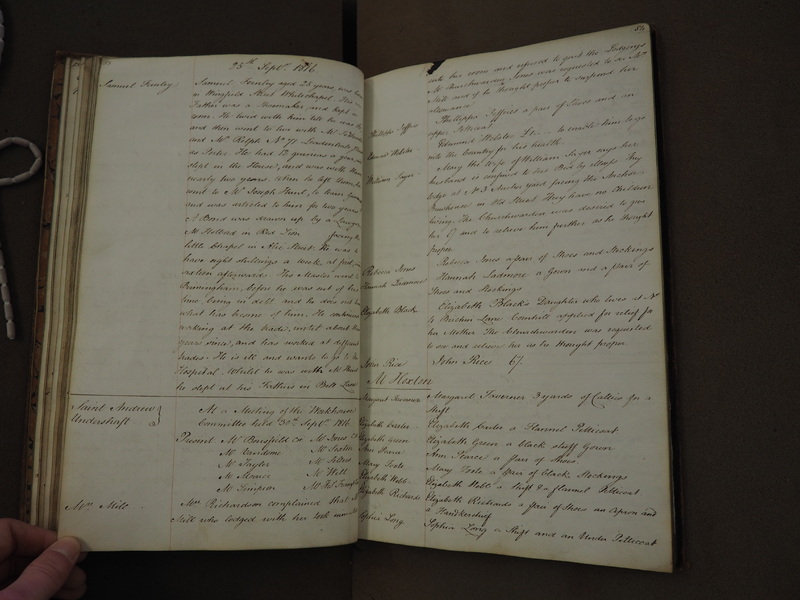 25th Septr. 1816.
Samuel Formley
Samuel Formley aged 25 years, was born
in Wingfield Street Whitechapel. His
Father was a Shoemaker and kept a
He lived with him till he was
and then went to live with Mr
and Mr. Ralph No. 77
as Porter. He had 12 guineas a year, and
slept in the House, and was with them
nearly two years, when he left them, he
went to Mr. Joseph Hunt, to learn
and was articled to him for two years
A Bond was drawn up by a Lawyer
Mr Holland in Red Lion facing the
little Chapel in Alie Street. He was to
have eight shillings a week at first, and
after afterwards. His Master went to
Birmingham, before he was out of his
time, being in debt and he does not know
what has become of him. He continued
working at the trade, until about
years since, and has worked at different
trades. He is ill and wants to go to the
Hospital. Whilst he was with Mr Hunt
he slept at his Father's in Bell Lane
Saint Andrew
Undershaft
At a Meeting of the Workhouse
Committee held 30th Septr. 1816.
Present Mr Bousfield Mr Jones
Mr Vandome
Mr Taylor
Mr Webb
Mr Simpson
Mrs. Mill
Mrs Richardson complained that
Mill who lodged with her took
into her room and refused to quit the Lodgings
Mr Churchwarden Jones was requested to see Mrs
Mill and if he thought proper to suspend her
allowance
Phillippa Jeffries
Phillippa Jeffries a pair of Shoes and an
upper Petticoat
Edmund Webster
Edmund Webster to enable him to go
into the Country for his health.
William Sayer
Mary the Wife of William Sayer says her
husband is confined to his Bed by illness They
lodge at No 3 yard facing the Anchor
Brewhouse in Old Street They have no Children
living. The Churchwarden was desired to give
her and to relieve him further as he thought
proper
Rebecca Jones
Rebecca Jones a pair of Shoes and Stockings
Hannah Lardmore
Hannah Lardmore a Gown and a pair of
Shoes and Stockings
Elizabeth Black
Elizabeth Black's Daughter who lives at No
Birchin Lane Cornhill applied for relief for
her Mother The Churchwarden was requested
to see and relieve her as he thought proper
John Rice
John Rice 67.
At Hoxton
Margaret Taverner
Margaret Taverner 3 yards of Callico for a
Shift
Elizabeth Carter
Elizabeth Carter a Flannel Petticoat
Elizabeth Green
Elizabeth Green a black stuff Gown
Ann Pearce
Ann Pearce a pair of Shoes
Mary Toole
Mary Toole a pair of black Stockings
Elizabeth Webb
Elizabeth Webb a stuff & a flannel Petticoat
Elizabeth Richards
Elizabeth Richards a pair of Shoes an Apron and
a Handkerchief
Sophia Long
Sophia Long a Shift and an Under Petticoat